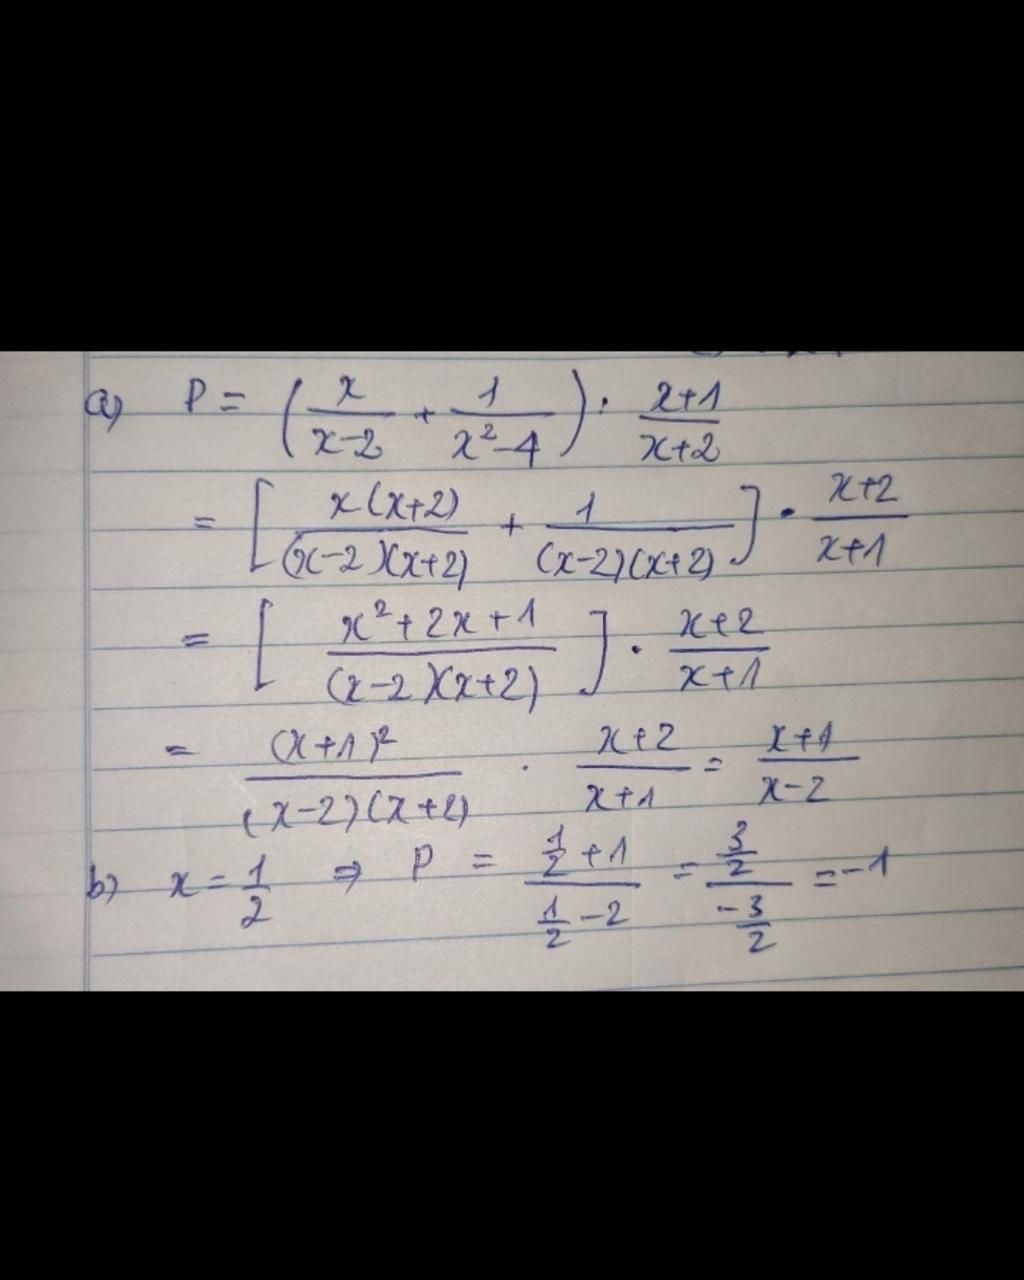 a) P = (x/(x-2) + 1/(x²-4)) : (x+1)/(x+2)
= [x(x+2)/((x-2)(x+2)) + 1/((x-2)(x+2))] · (x+2)/(x+1)
= [(x²+2x+1)/((x-2)(x+2))] · (x+2)/(x+1)
= (x+1)²/((x-2)(x+2)) · (x+2)/(x+1) = (x+1)/(x-2)
b) x = 1/2 ⇒ P = (1/2+1)/(1/2-2) = (3/2)/(-3/2) = -1